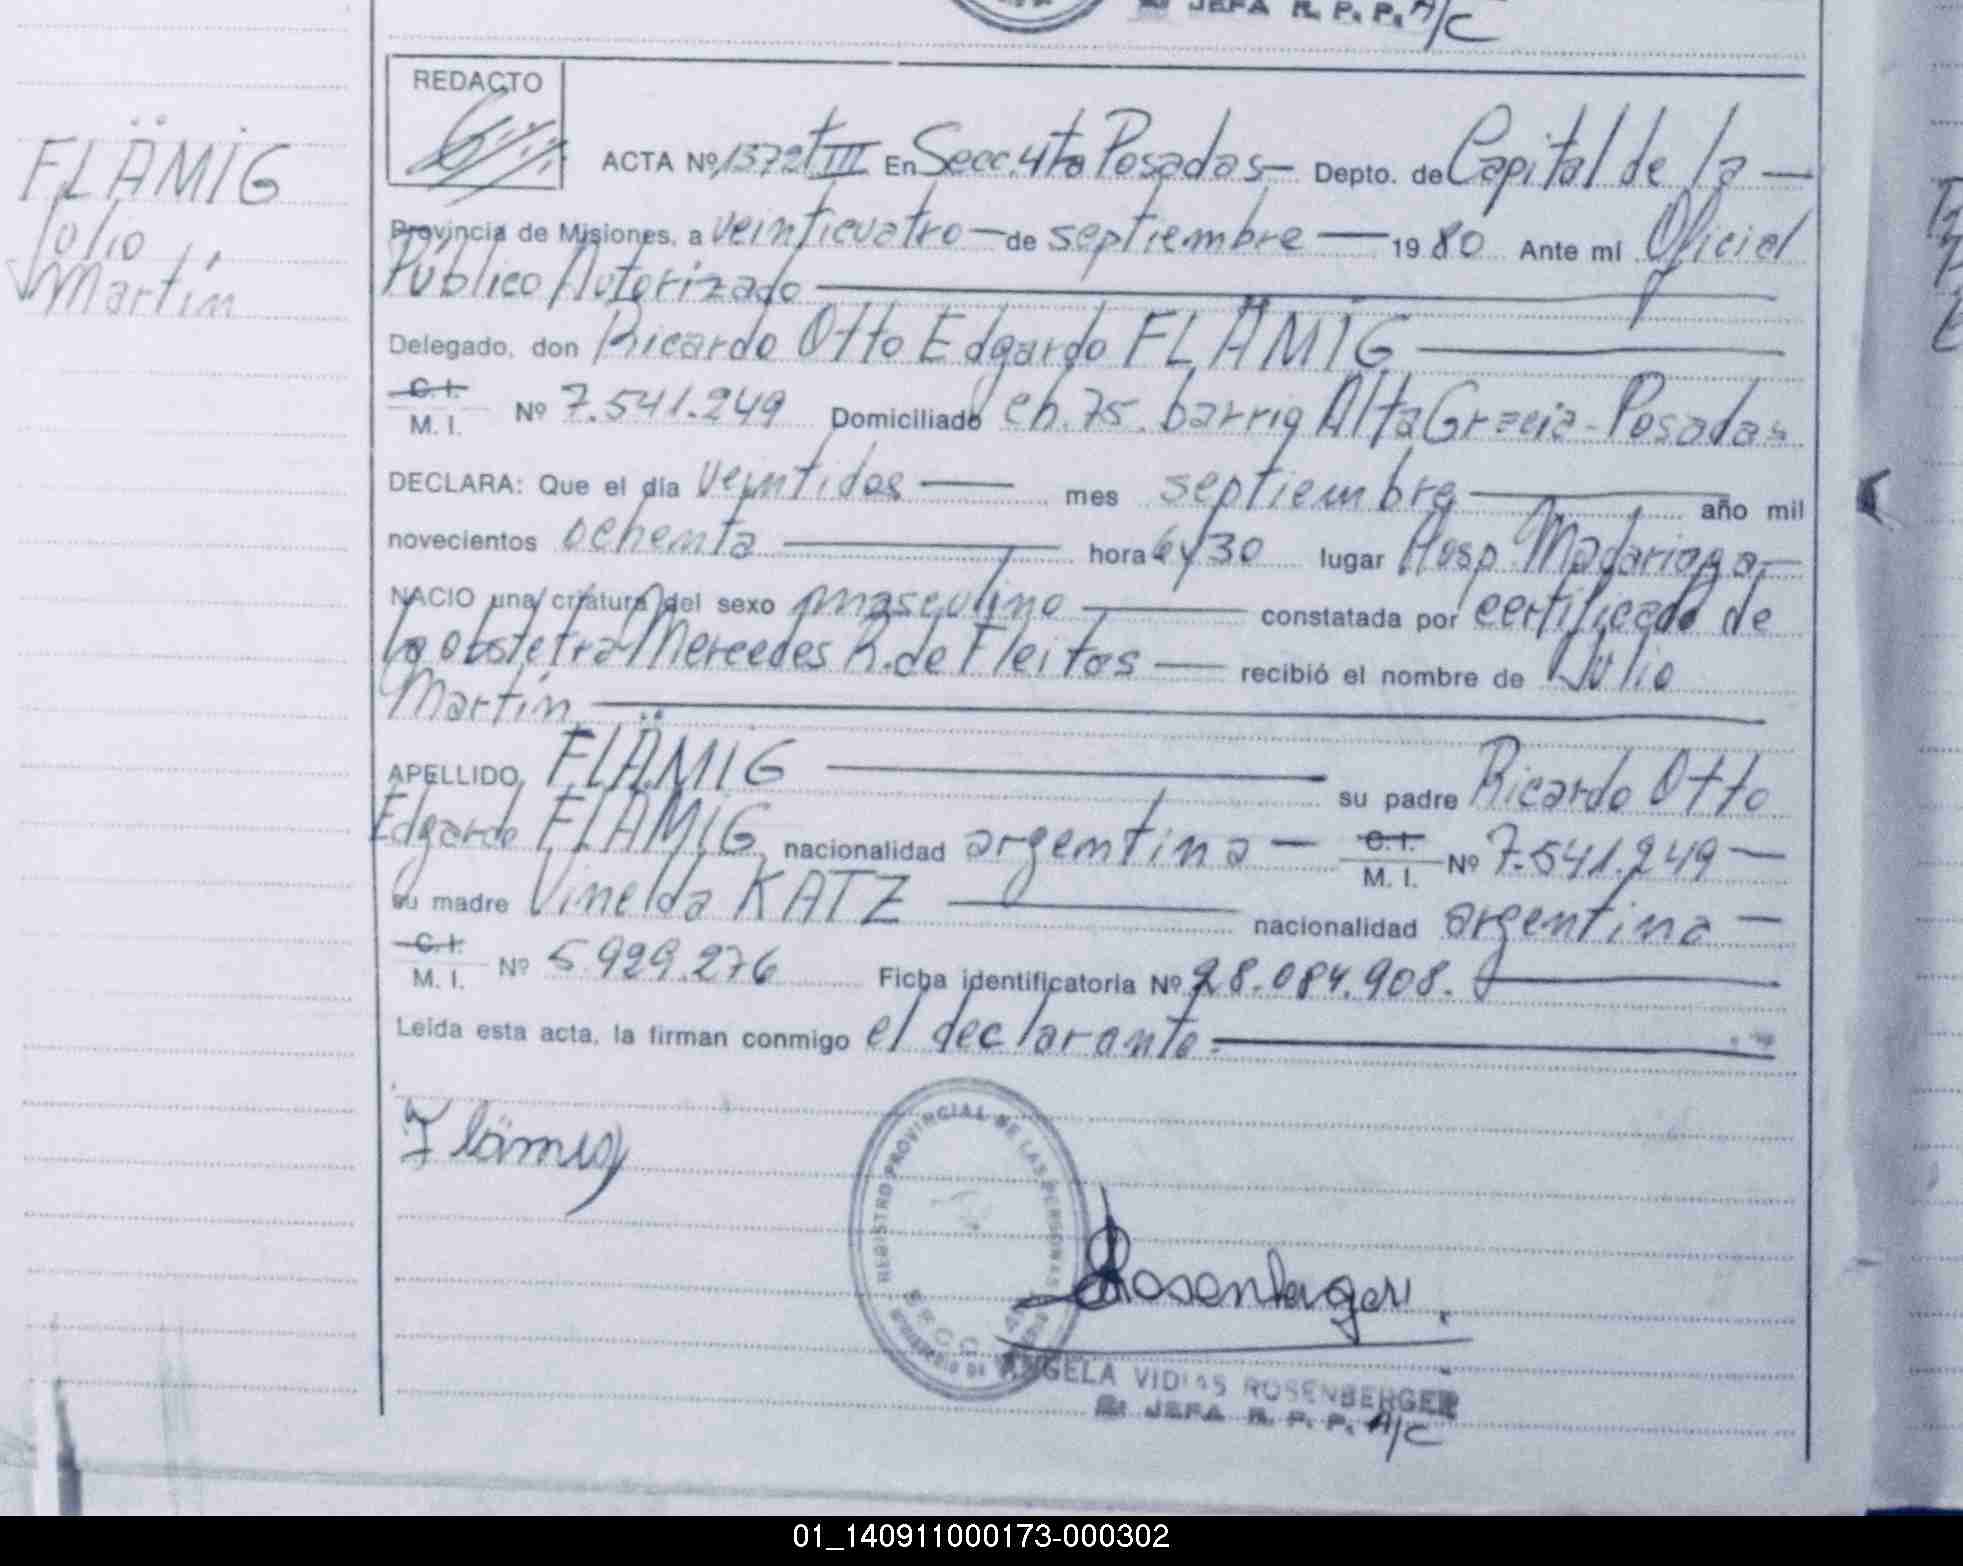 JEFA R. P. P. A/C
REDACTO
FLÄMIG
Julio
Martín
ACTA Nº 1372 t III En Secc. 4ta Posadas — Depto. de Capital de la —
Provincia de Misiones, a veinticuatro — de septiembre — 1980 Ante mí Oficial
Público Autorizado —
Delegado, don Ricardo Otto Edgardo FLÄMIG —
C. I.
M. I. Nº 7.541.249 Domiciliado ch. 75. barrio Alta Gracia - Posadas
DECLARA: Que el día veintidos — mes septiembre — año mil
novecientos ochenta — hora 6 y 30 lugar Hosp. Madariaga —
NACIO una criatura del sexo masculino — constatada por certificado de
la obstetra Mercedes R. de Fleitas — recibió el nombre de Julio
Martín —
APELLIDO FLÄMIG — su padre Ricardo Otto
Edgardo FLÄMIG nacionalidad argentina — C. I. M. I. Nº 7.541.249 —
su madre Vinelda KATZ — nacionalidad argentina —
C. I.
M. I. Nº 5.929.276 Ficha identificatoria Nº 28.084.908. —
Leída esta acta, la firman conmigo el declarante. —
Flämig
REGISTRO PROVINCIAL DE LAS PERSONAS
SECC
Rosenberger
ANGELA VIDIAS ROSENBERGER
JEFA R. P. P. A/C
01_140911000173-000302